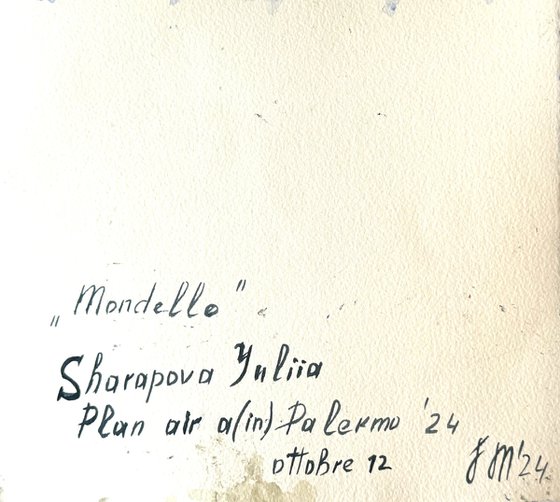 „Mondello"
Sharapova Yuliia
Plan air a(in) Palermo '24
ottobre 12